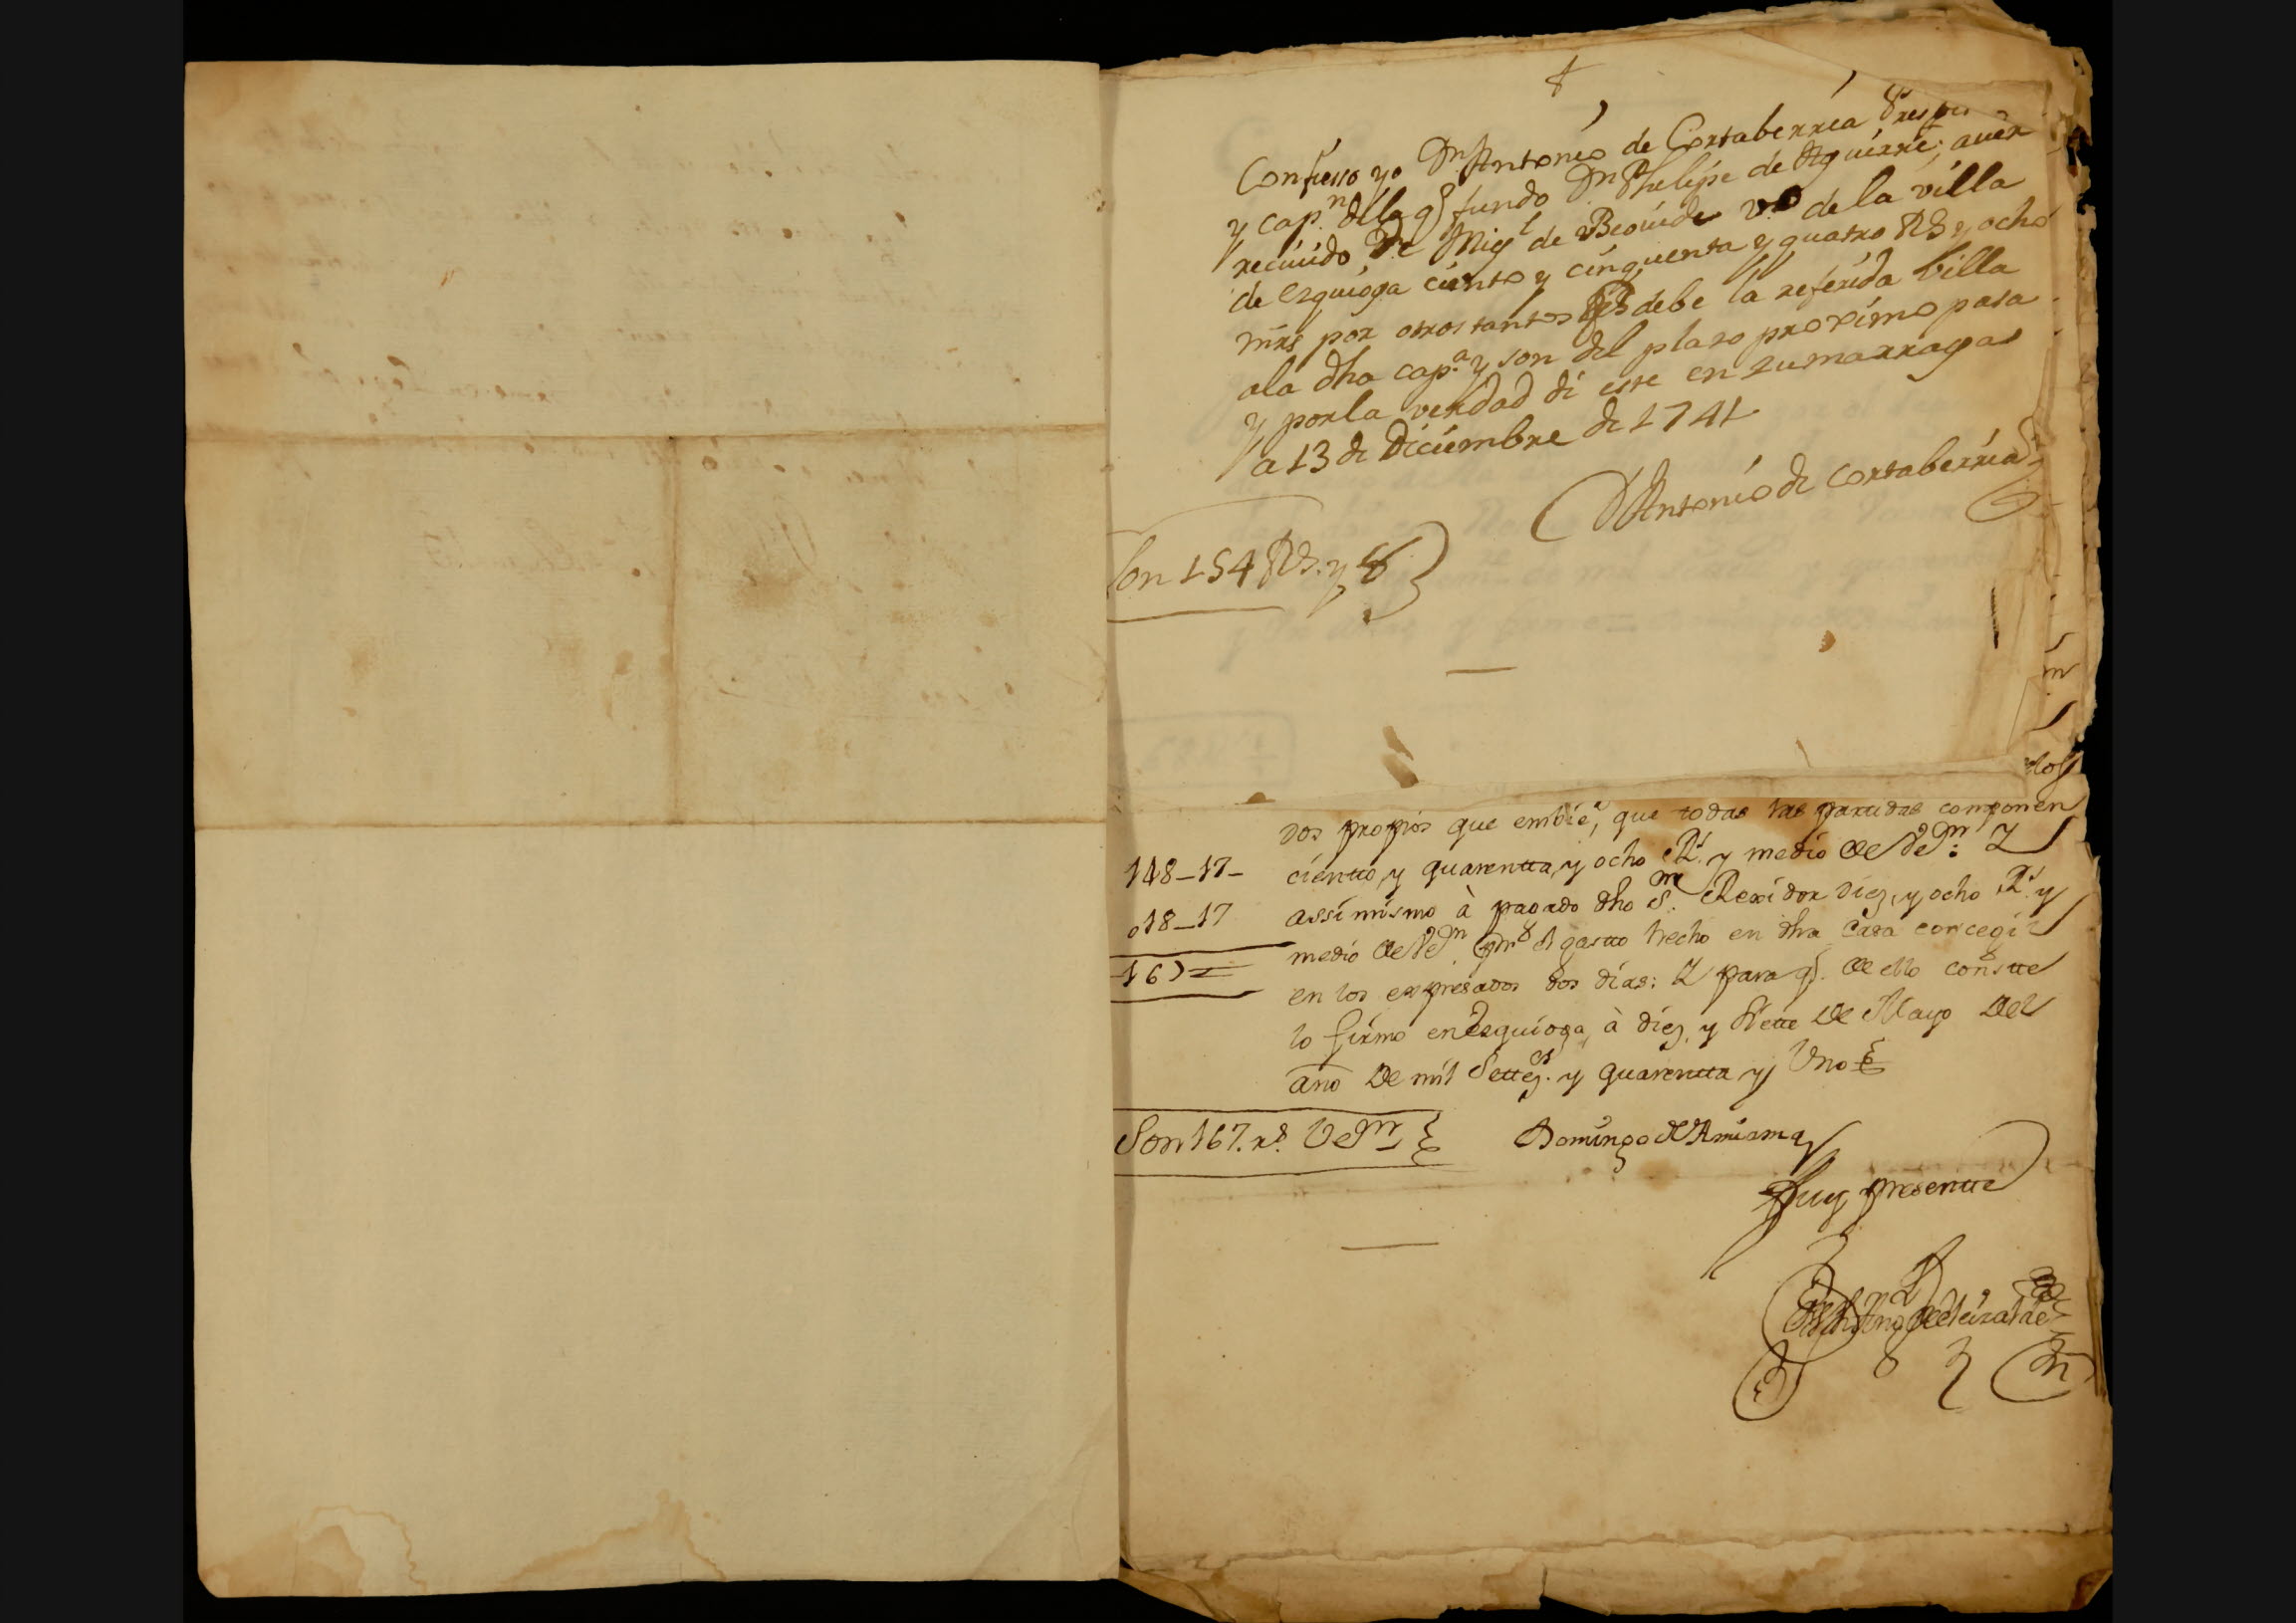 Confiesso yo Dn Antonio de Cortaberria Presvo
y capn dela q̃ fundo Dn Phelipe de Aguirre, auer
reciuido De Migl de Beouide vo de la villa
de ezquioga ciento y cinquenta y quatro Rs y ocho
mrs por otros tantos q̃ debe la referida Villa
ala dha capa y son del plazo proximo pasa
y porla verdad di este en zumarraga
a 13 de Diciembre de 1741
D Antonio de Cortaberria
Son 154 Rs. y 8
dos propios que embié, que todas las partidas componen
148-17- cientto, y quarentta, y ocho Rs. y medio de Von: Y
018-17 assimismo à pagado dho Sr. Rexidor diez, y ocho Rs. y
167= medio de Von. por el gastto hecho en dha Casa concegil
en los expresados dos dias: Y para q̃. de ello constte
lo firmo en Ezquioga, à diez, y siette de Mayo del
año de mil Settezs. y quarentta y Uno
Son 167. rs. Von
Domingo de
Fuy presentte